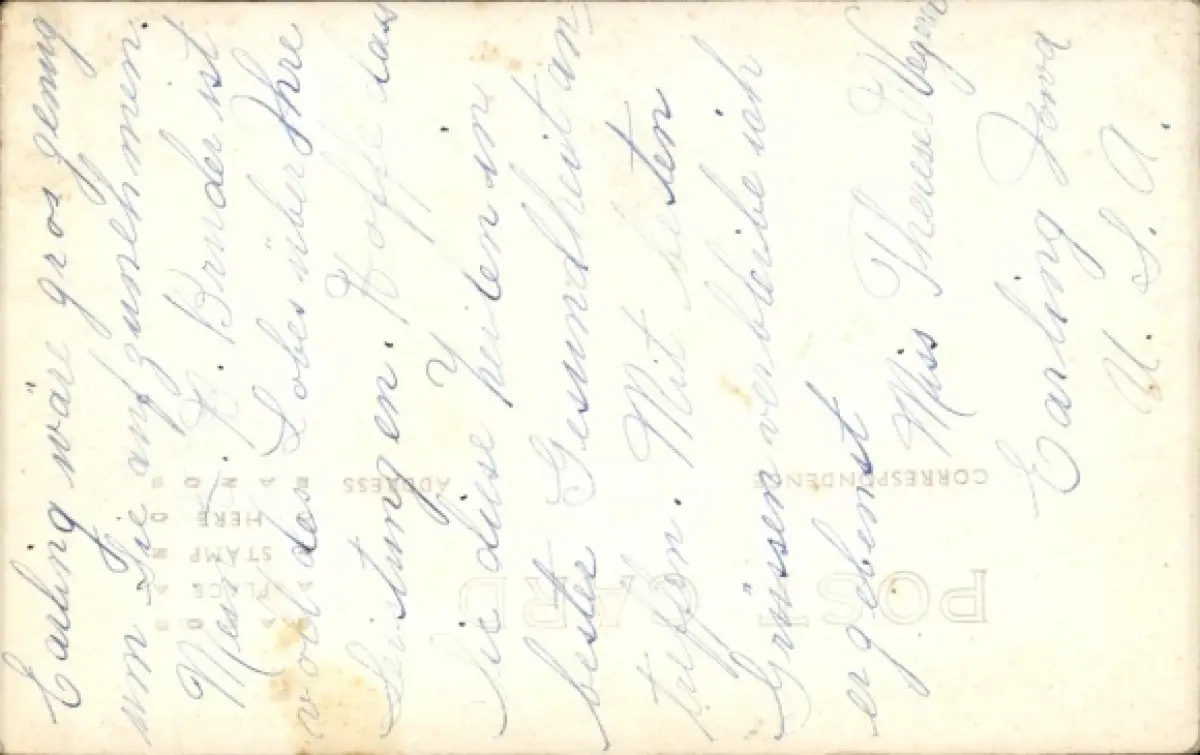 Earling wäre gros genug
um Sie aufzunehmen.
Mein H. Bruder ist
voll das Lobes über Ihre
Leistungen. Hoffe das
Sie diese Zeilen in
bester Gesundheit an-
treffen. Mit besten
Grüssen verbleibe ich
ergebenst
Miss Therese
Earling Iowa
U. S. A.
POST CARD
CORRESPONDENCE
ADDRESS
PLACE
STAMP
HERE